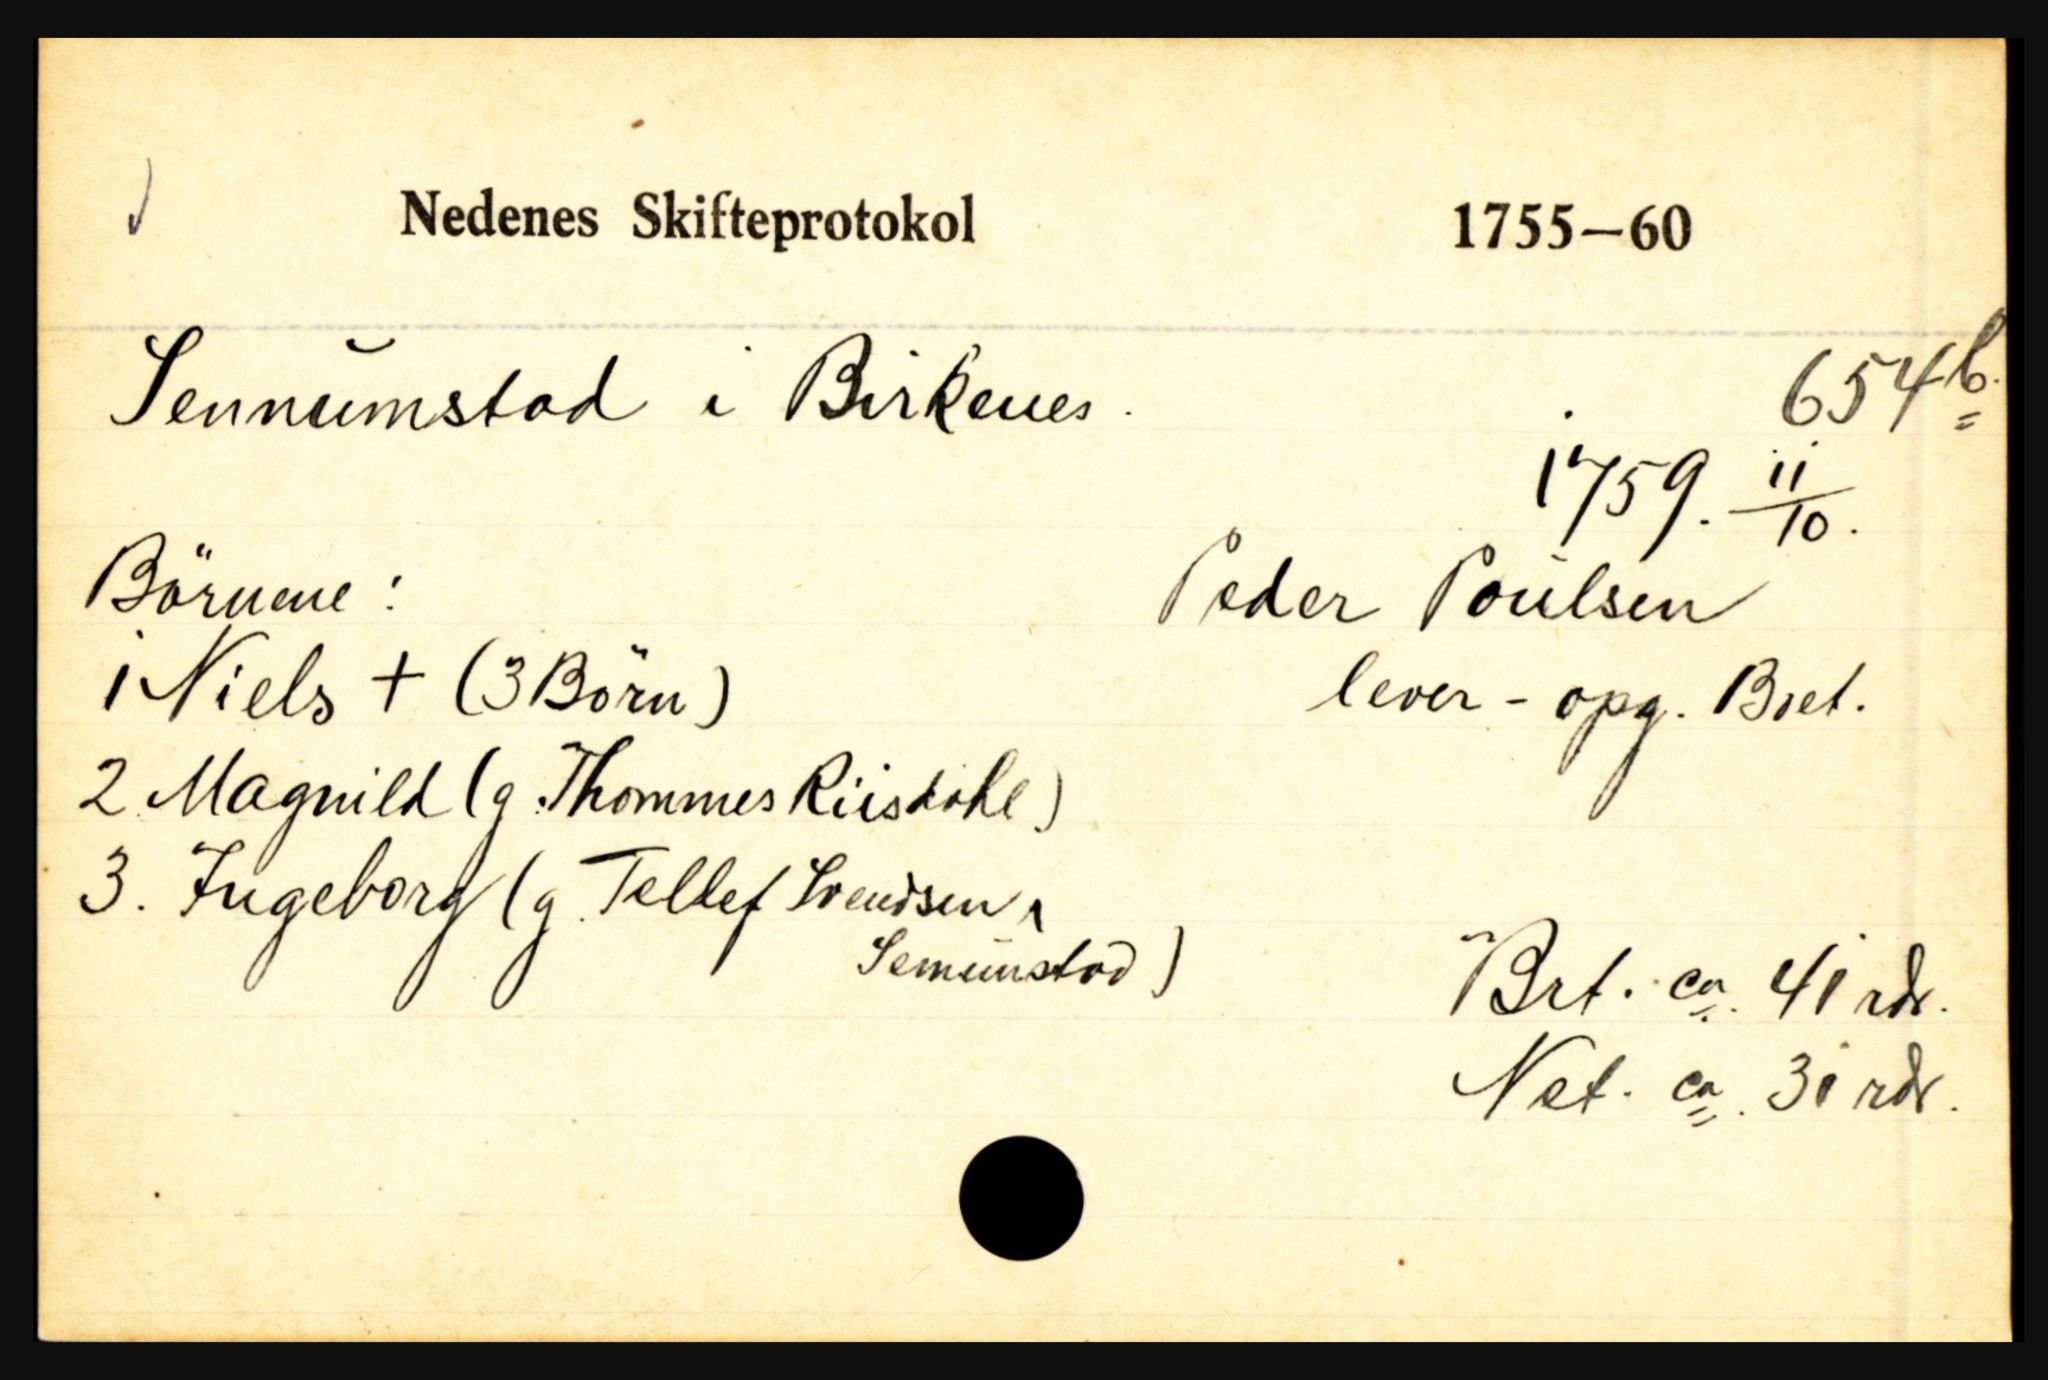 Nedenes Skifteprotokol 1755—60
Sennumstad i Birkenes.
654b.
1759. 11/10.
Peder Poulsen
lever - opg. Boet.
Börnene:
1 Niels + (3 Börn)
2 Magnild (g. Thommes Riisdahl)
3. Ingeborg (g. Tellef Svendsen
Semumstad)
Brt. ca. 41 rdr.
Net. ca. 31 rdr.